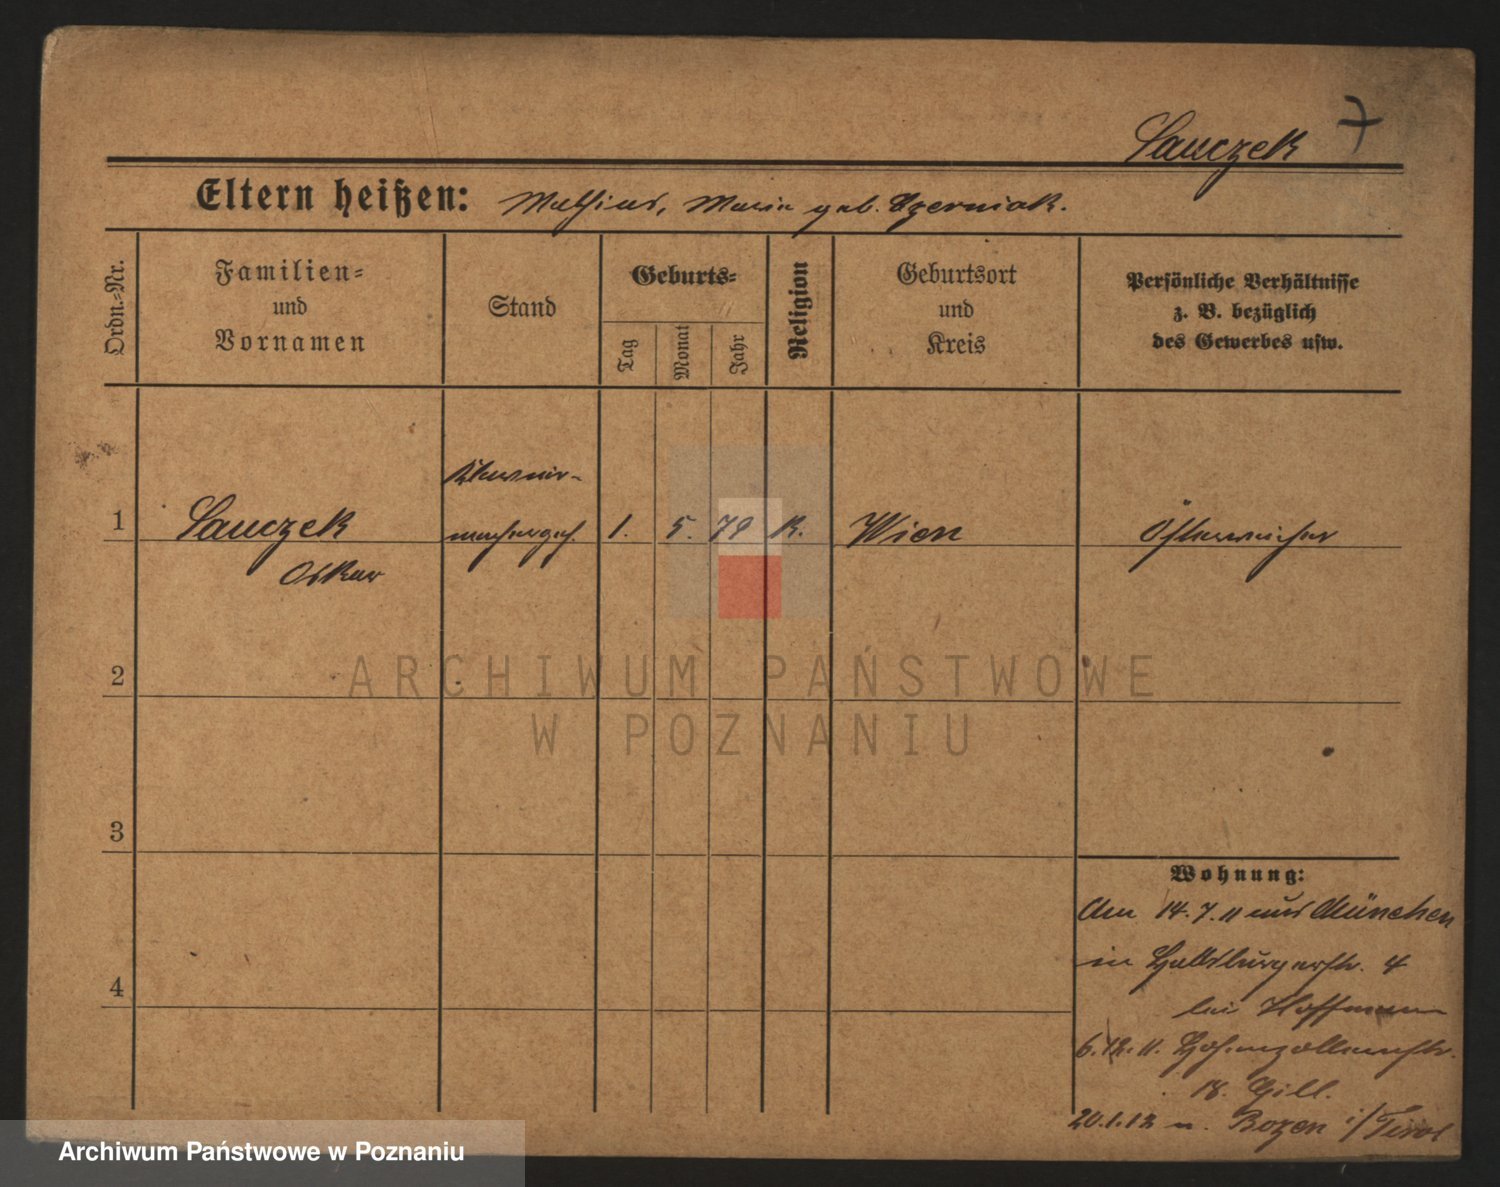 Sauczek 7
Eltern heißen: Mathias, Maria geb. Czerniak.
Ordn.=Nr.
Familien=
und
Vornamen
Stand
Geburts=
Tag
Monat
Jahr
Religion
Geburtsort
und
Kreis
Persönliche Verhältnisse
z. B. bezüglich
des Gewerbes usw.
Klavier-
1 Sauczek machergeh. 1. 5. 79 K. Wien Österreicher
Oskar
2
3
4
Wohnung:
Am 14.7.11 aus München
in Habsburgerstr. 4
bei Hoffmann
6.12.11. Hohenzollernstr.
18. Gill.
20.1.12 n. Bozen i/Tirol
ARCHIWUM PAŃSTWOWE
W POZNANIU
Archiwum Państwowe w Poznaniu